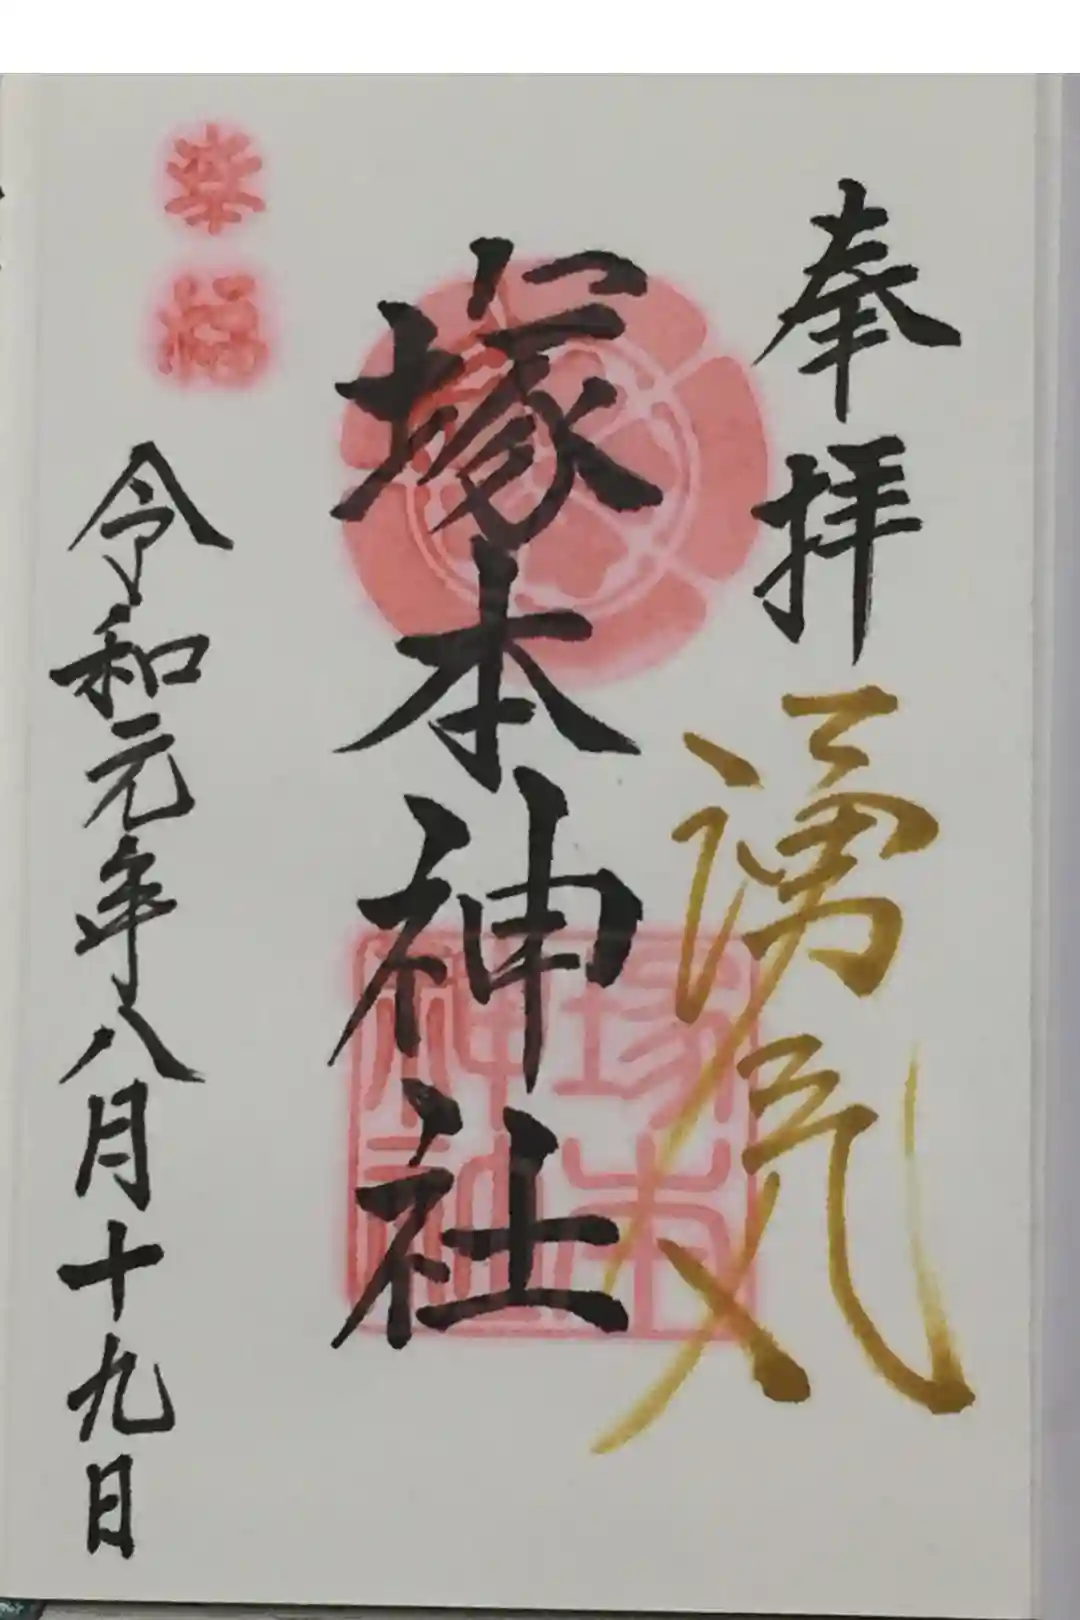 奉拝
湧気
塚本神社
塚本
神社
幸福
令和元年八月十九日